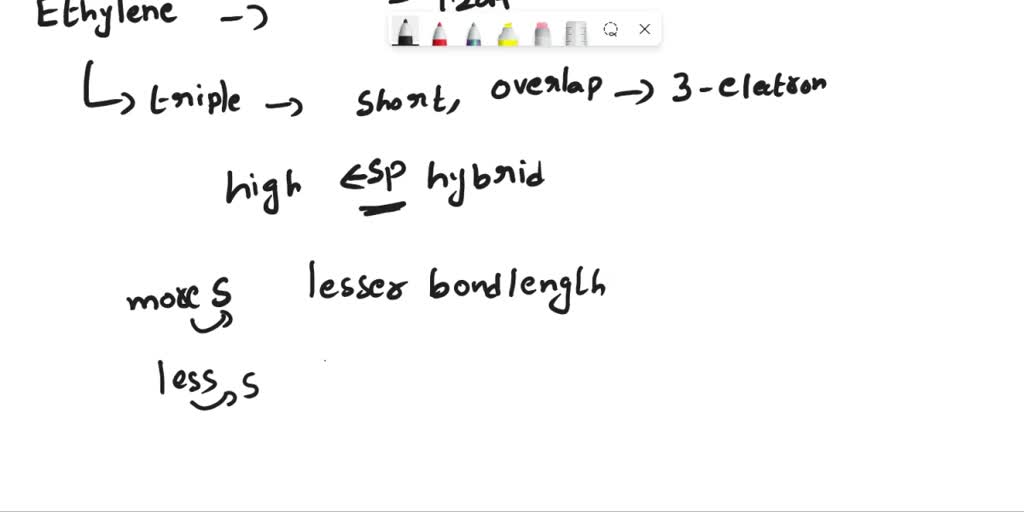 Ethylene →
↳ triple → short, overlap → 3-electron
high ← sp hybrid
more s lesser bondlength
less s